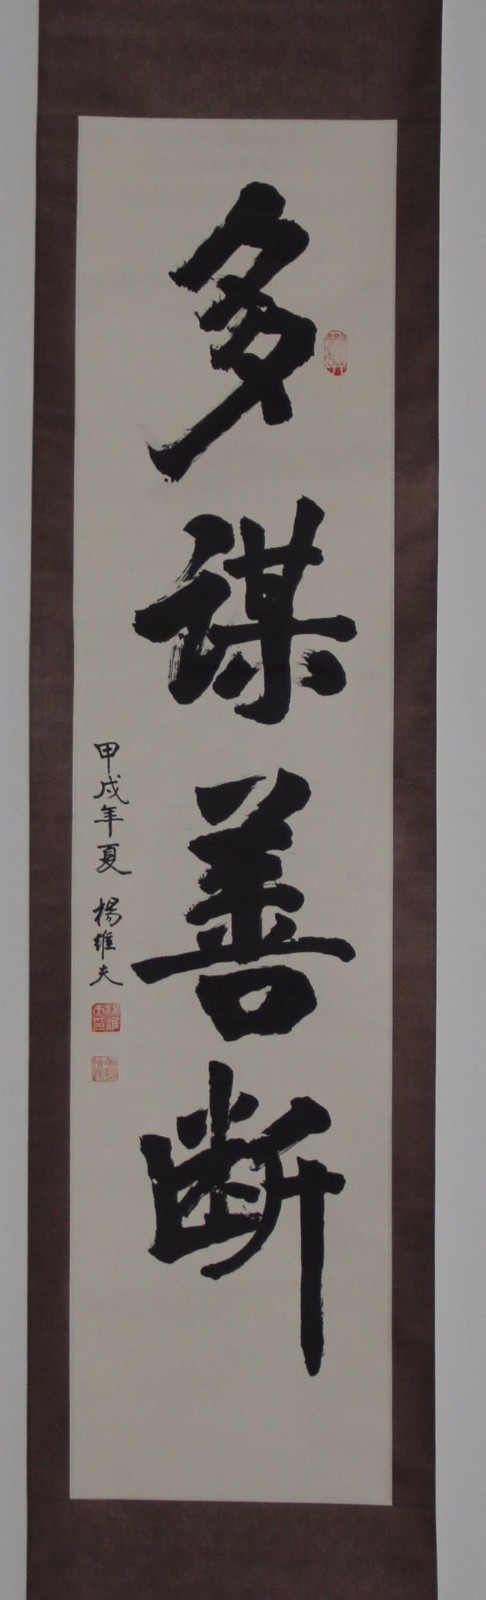 多谋善断
甲戌年夏 楊維夫